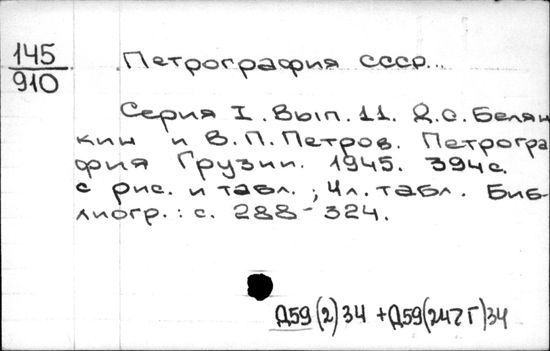 145
910
Петрография СССР...
Серия I. Вып. 11. Д.С. Белян
кин и В.П. Петров. Петрогра
фия Грузии. 1945. 394 с.
с рис. и табл.; 4 л. табл. Биб-
лиогр.: с. 288-324.
Д59(2)34 + Д59(247Г)34